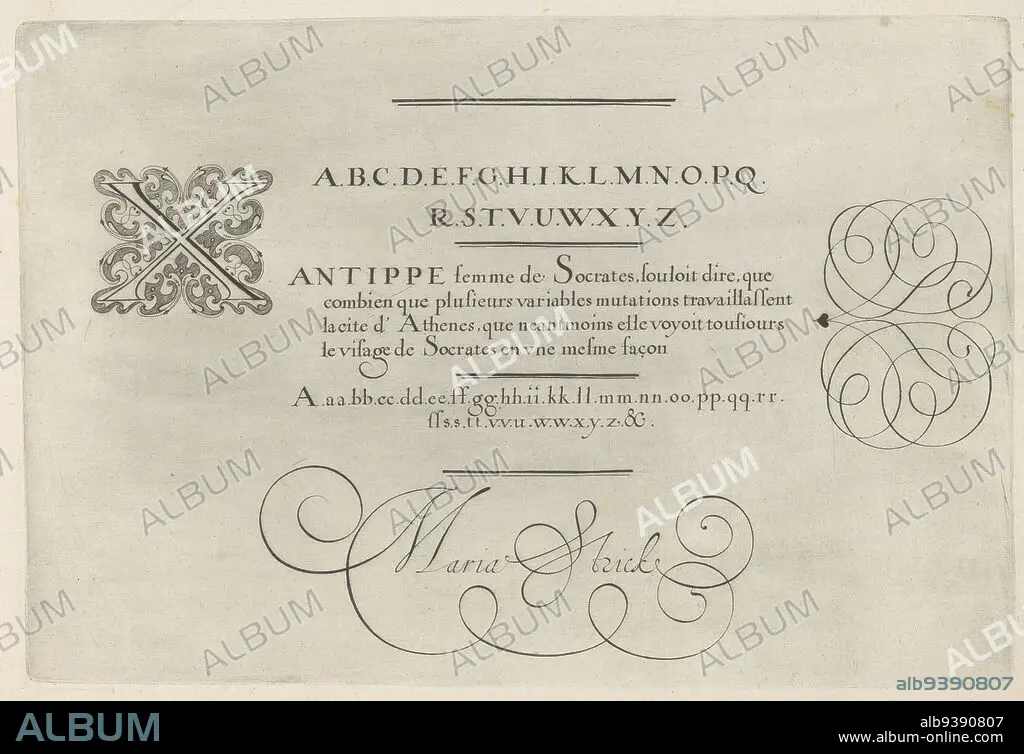 A.B.C.D.E.F.G.H.I.K.L.M.N.O.P.Q.
R.S.T.V.U.W.X.Y.Z.
XANTIPPE femme de Socrates, ſouloit dire, que
combien que pluſieurs variables mutations travaillaſſent
la cite d' Athenes, que neantmoins elle voyoit touſiours
le viſage de Socrates en vne meſme façon
A.aa.bb.cc.dd.ee.ff.gg.hh.ii.kk.ll.mm.nn.oo.pp.qq.rr.
ſſs.s.tt.v.v.u.w.w.x.y.z.&.
Maria Strick
alb9390807
ALBUM
alb9390807
www.album-online.com